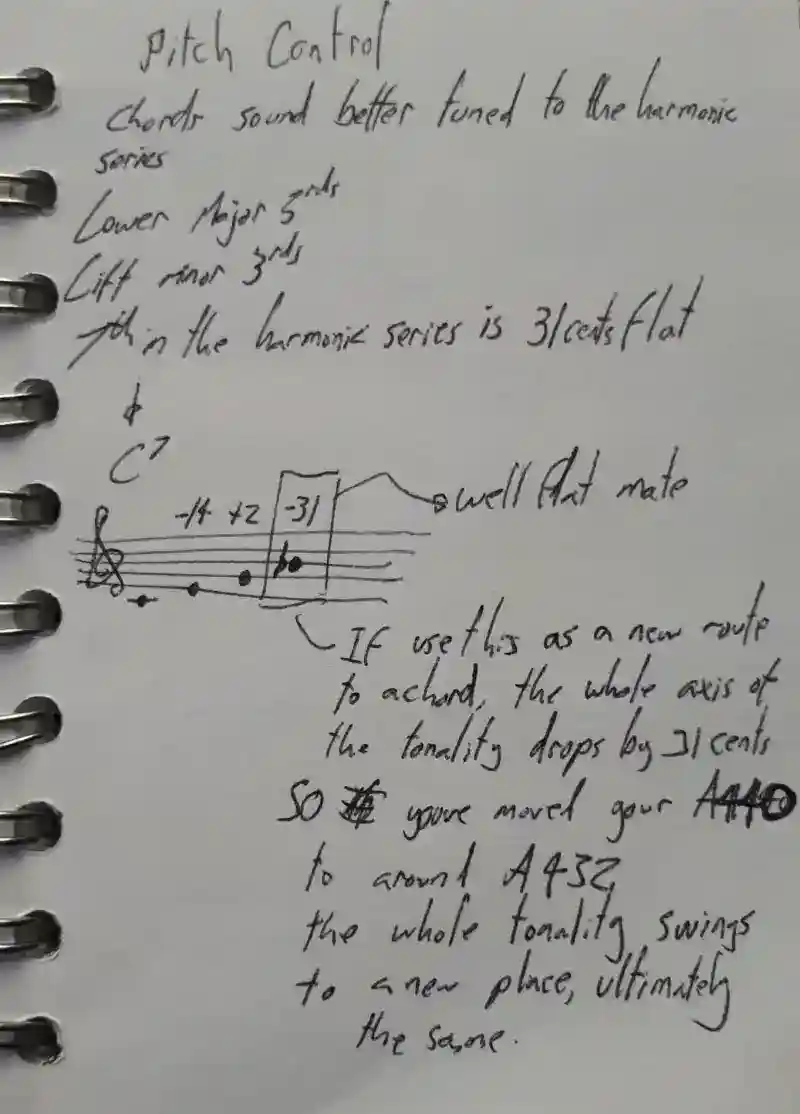 Pitch Control
Chords sound better tuned to the harmonic
series
Lower Major 3rds
Lift minor 3rds
7th in the harmonic series is 31 cents flat
C7
-14 +2 -31
well flat mate
If use this as a new route
to a chord, the whole axis of
the tonality drops by 31 cents
So youve moved your A440
to around A432,
the whole tonality swings
to a new place, ultimately
the same.